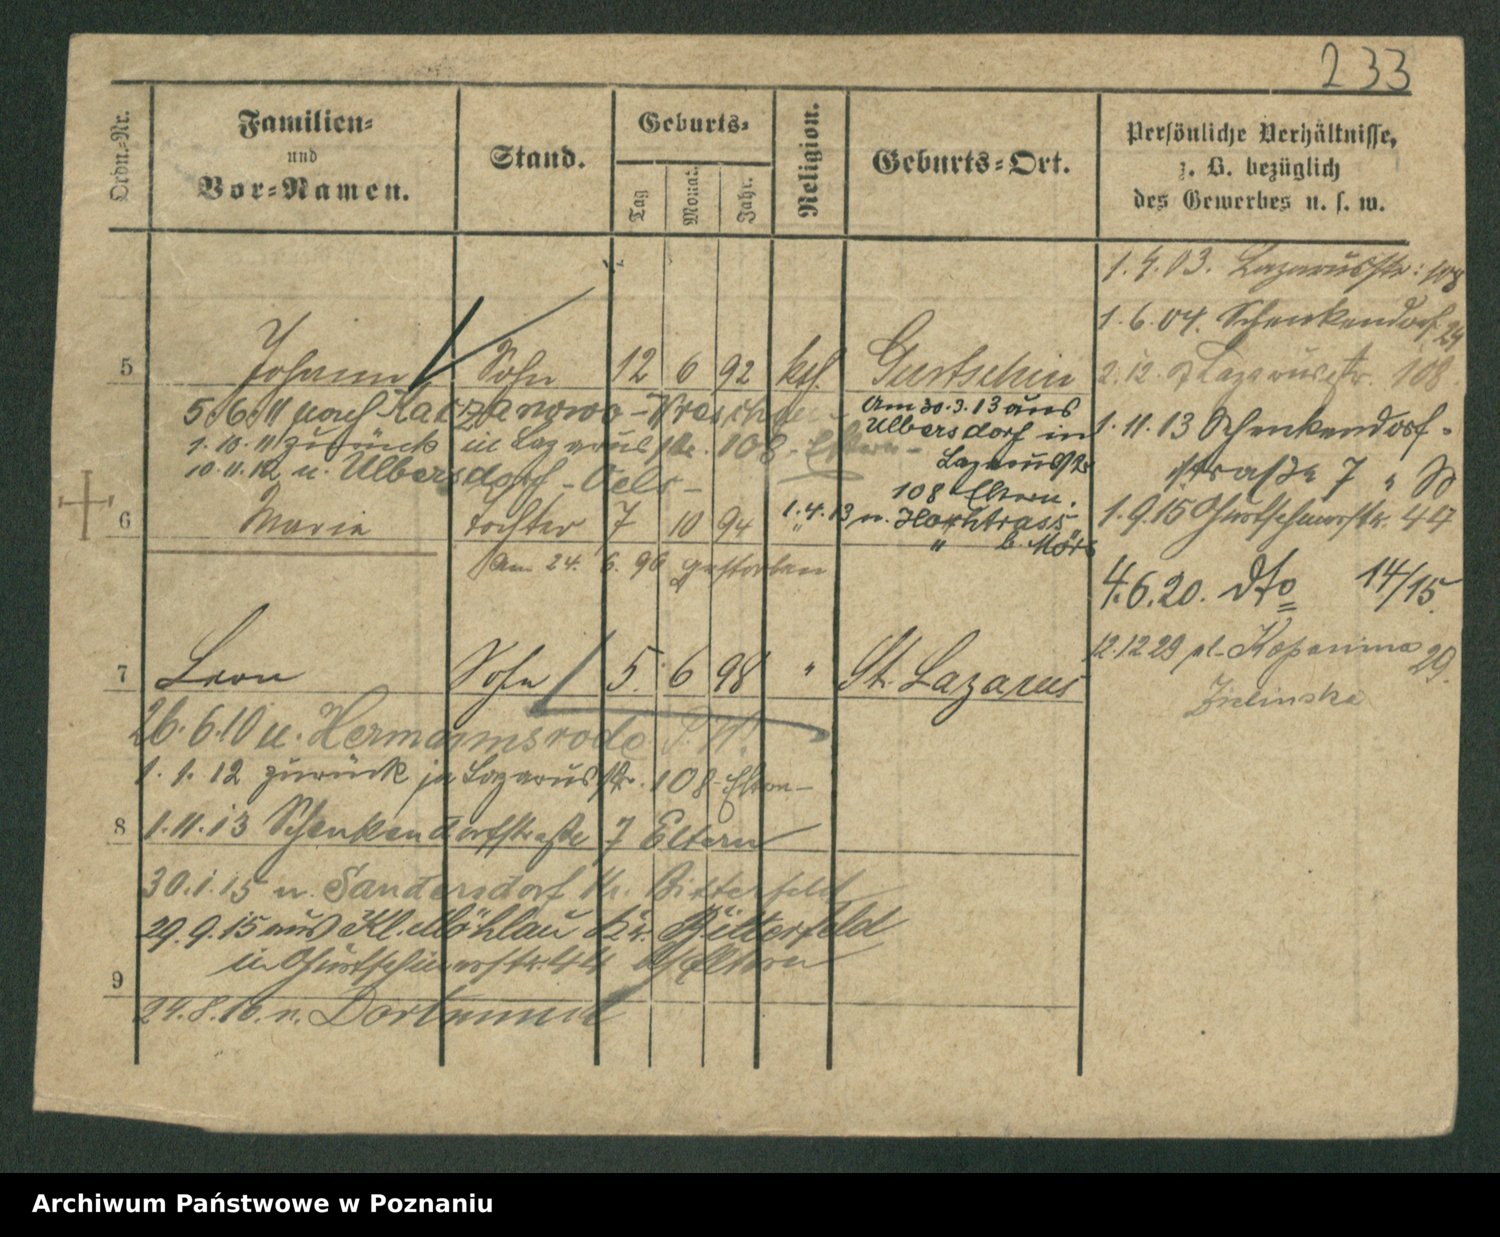 233
Ordn.-Nr.
Familien-
und
Vor-Namen.
Stand.
Geburts-
Tag
Monat.
Jahr.
Religion.
Geburts-Ort.
Persönliche Verhältnisse,
z. B. bezüglich
des Gewerbes u. s. w.
1.4.03. Lazarusstr: 108
1.6.04. Schenkendorf. 24
2.12. Lazarusstr. 108.
1.11.13 Schenkendorf-
straße 7
1.9.15 Gurtschinerstr. 44
4.6.20. dto 14/15.
12.12 29 pl. Kopanina 29.
Zielinska
5 Johann Sohn 12 6 92 ktf. Gurtschin
5.6.11 nach Kaczanowo - Wreschen
1.10.11 zurück in Lazarusstr. 108. Eltern-
10.11.12 n. Ulbersdorf - Oels -
Am 30.3.13 aus
Ulbersdorf in
Lazarusstr
108 Eltern.
1.4.13 n. Hochstrass
" " b. Mörs
6 Maria Tochter 7 10 94
Am 24. 6. 96 gestorben
7 Leon Sohn 5. 6 98 " St. Lazarus
26.6.10 n. Hermannsrode
1.1.12 zurück in Lazarusstr. 108 - Eltern -
8 1.11.13 Schenkendorfstraße 7 Eltern
30.1.15 n. Sandersdorf Kr. Bitterfeld
29.9.15 aus Kl. Möhlau Kr. Bitterfeld
in Gurtschinerstr. 44 Eltern
9
24.8.16. n. Dortmund
Archiwum Państwowe w Poznaniu